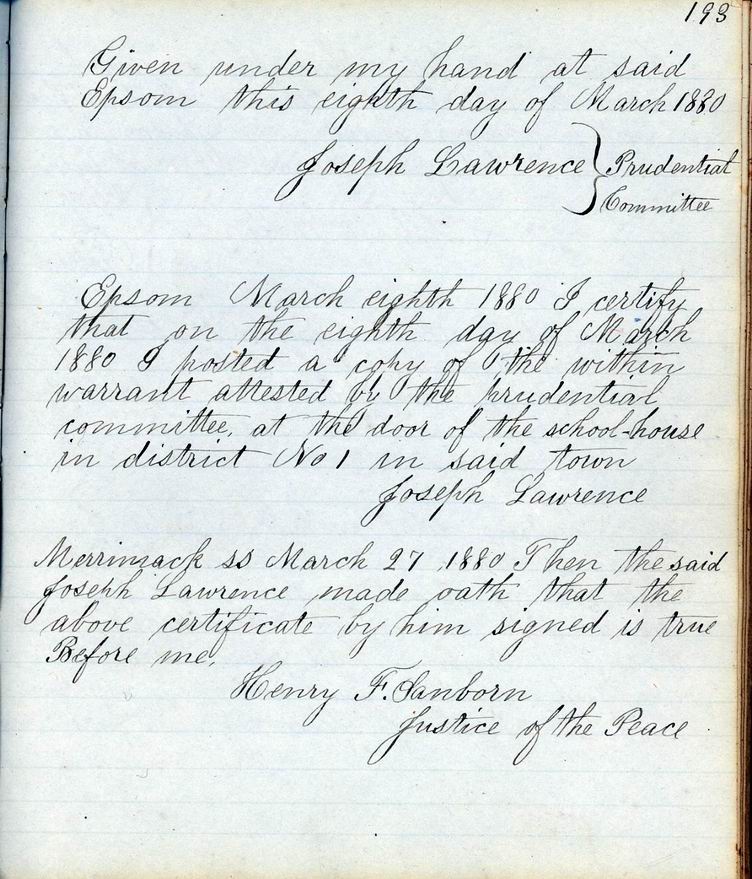 193
Given under my hand at said
Epsom this eighth day of March 1880
Joseph Lawrence } Prudential
Committee
Epsom March eighth 1880 I certify
that on the eighth day of March
1880 I posted a copy of the within
warrant attested by the prudential
committee, at the door of the school-house
in district No 1 in said town
Joseph Lawrence
Merrimack ss March 27 1880 Then the said
Joseph Lawrence made oath that the
above certificate by him signed is true
Before me,
Henry F. Sanborn
Justice of the Peace